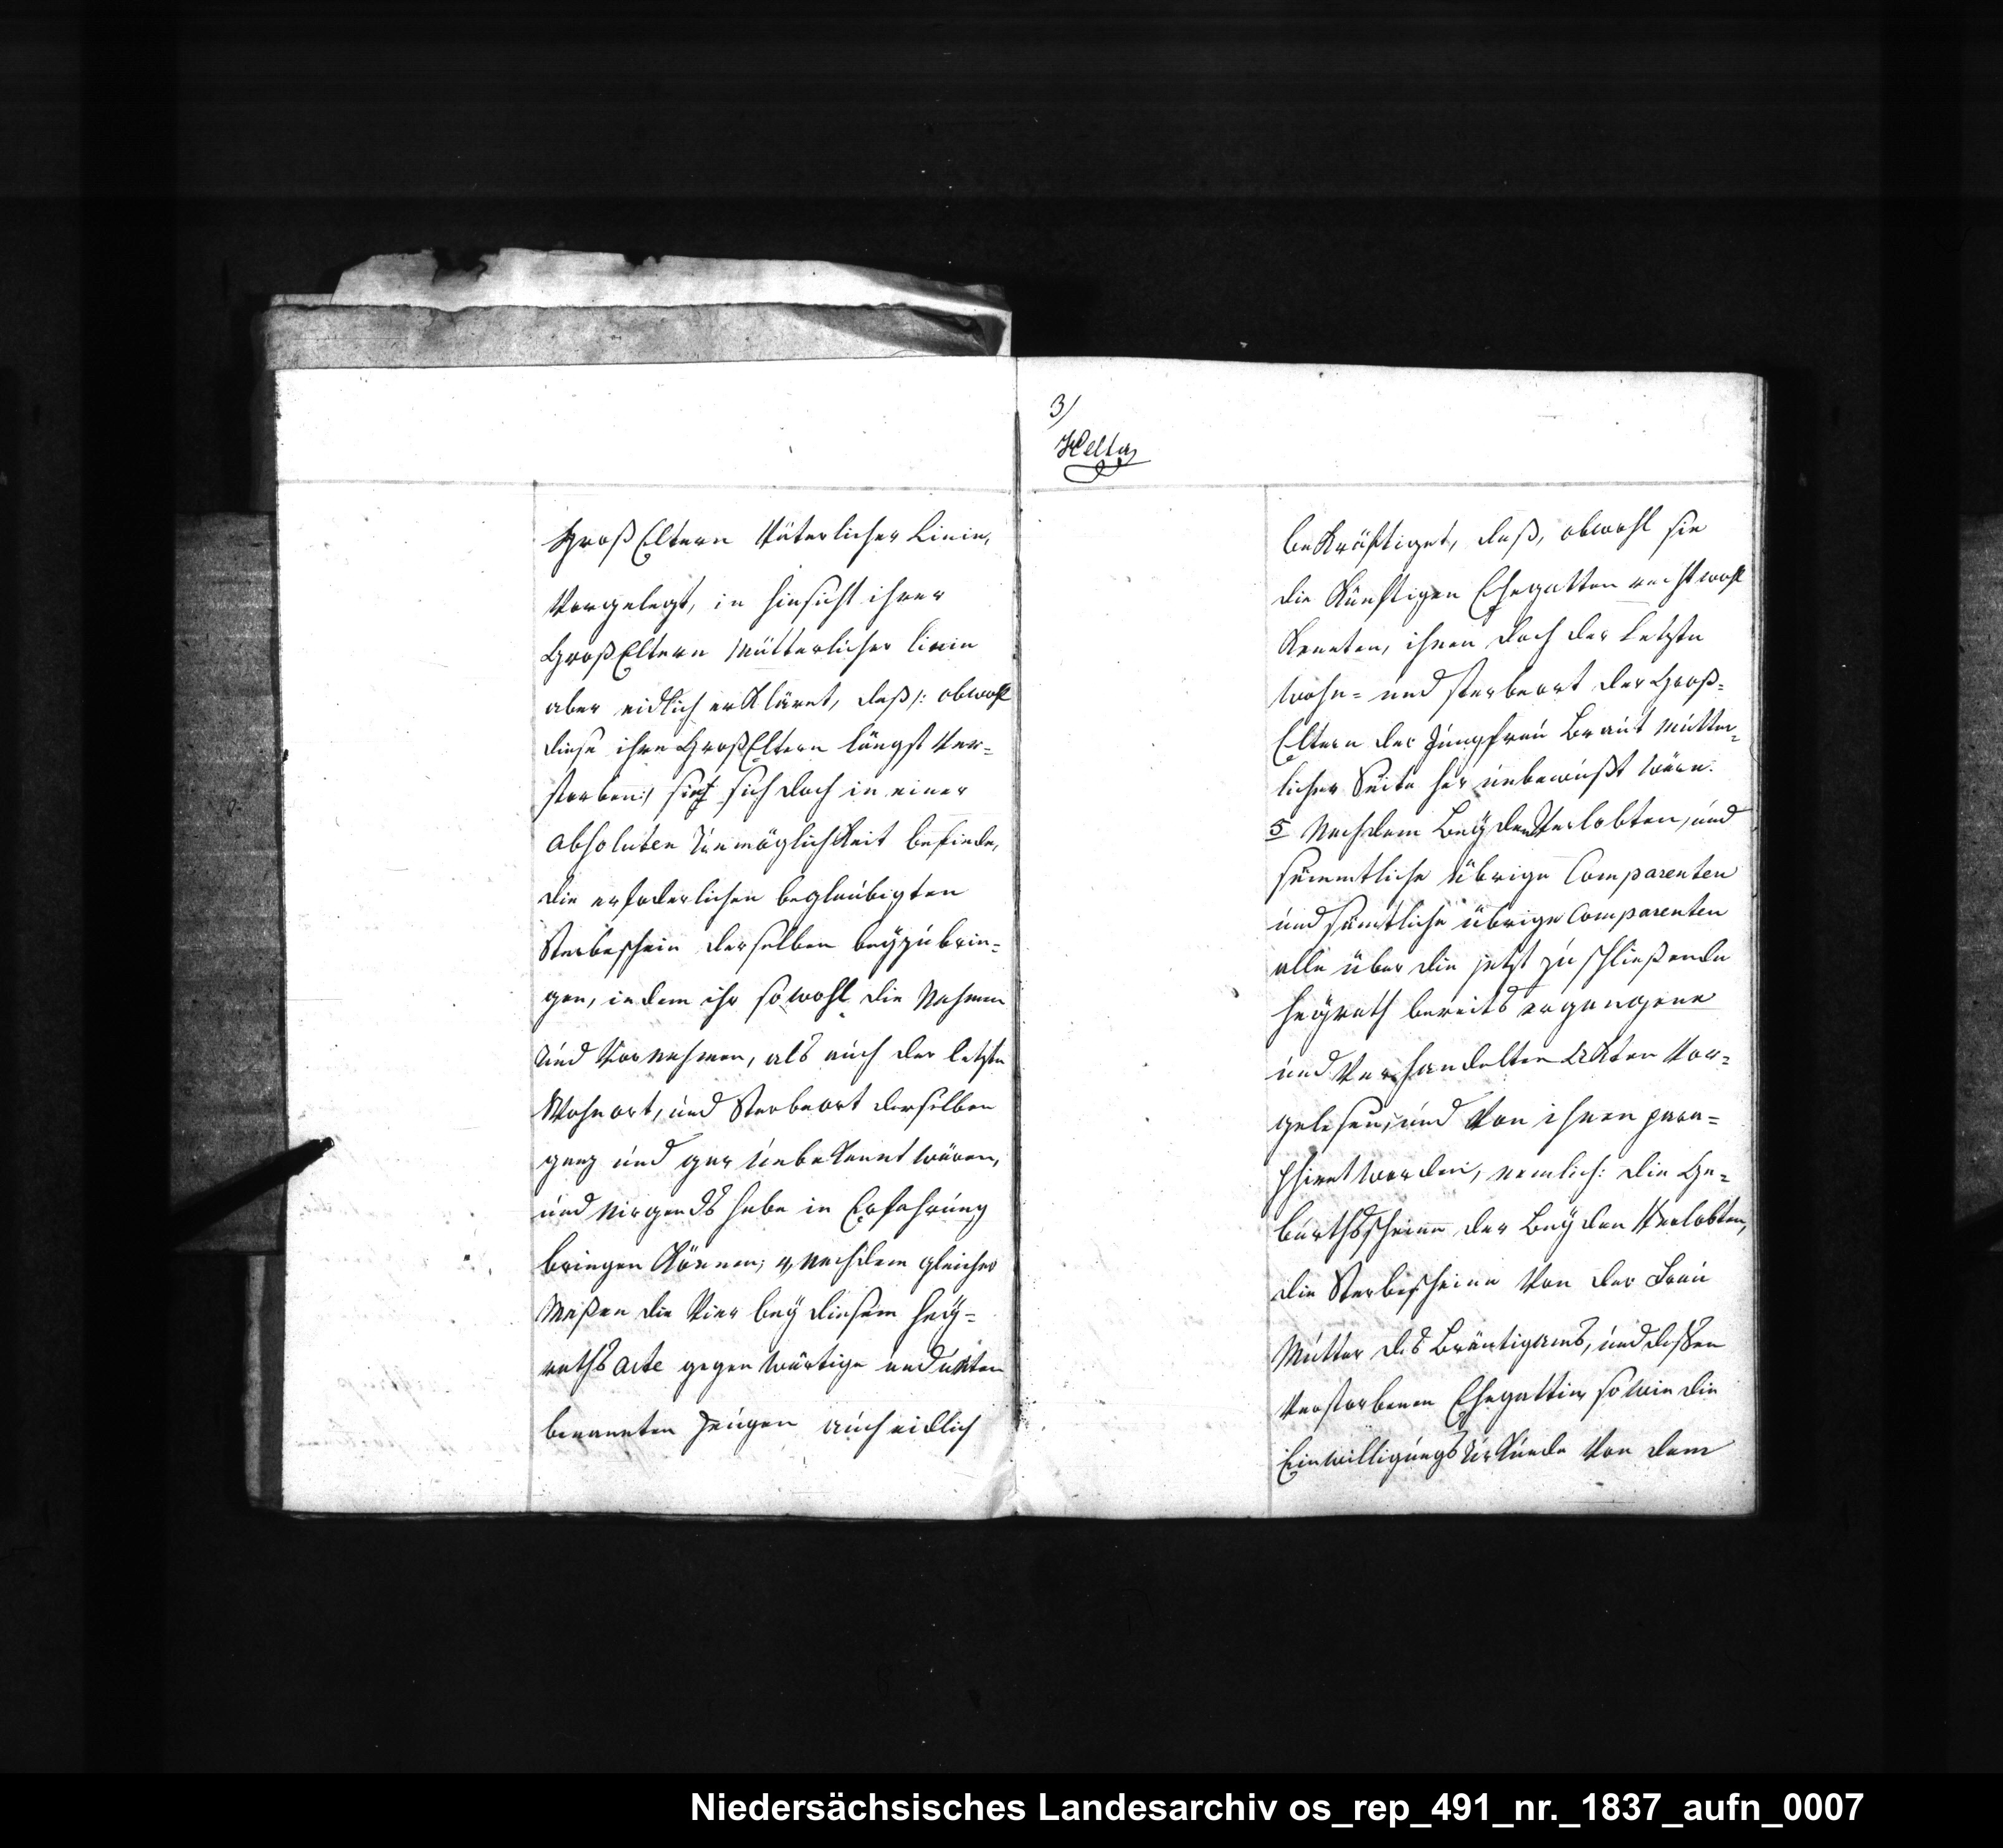 GroßEltern Väterlicher Linie,
Vorgelegt, in Hinsicht ihrer
GroßEltern Mütterlicher Linie
aber eidlich erkläret, daß /: obwohl
diese ihre GroßEltern längst Ver=
storben :/ sie sich doch in einer
absoluten Unmöglichkeit befinde,
die erfoderlichen beglaubigten
Sterbeschein derselben beyzubrin=
gen, indem ihr sowohl die Nahmen
und Vornahmen, als auch der letzte
Wohnort, und Sterbeort derselben
ganz und gar Unbekannt wären,
und Nirgends habe in Erfahrung
bringen können; 4, Nachdem gleicher
Maßen die Vier bey diesem Hey=
raths acte gegenwärtige und unten
benannten Zeugen auch eidlich
3/
bekräftiget, daß, obwohl sie
die Künftigen Ehegatten recht wohl
kennten, ihnen doch der letzte
Wohn= und Sterbeort der Groß=
Eltern der Jungfrau Braut Mütter=
licher Seite her unbewußt wäre.
5 Nachdem Beyden Verlobten, und
sämmtliche übrige Comparenten
und sämtliche übrige Comparenten
alle über die jetzt zu schließende
Heyrath bereits ergangene
und Verhandelten Akten Vor=
gelesen, und Von ihnen para=
phiret worden, nemlich: die Ge=
burthsscheine der Beyden Verlobten,
die Sterbescheine Von der Frau
Mutter des Bräutigams, und deßen
Verstorbenen Ehegattin, so wie die
Einwilligungs Urkunde Von dem
Niedersächsisches Landesarchiv os_rep_491_nr._1837_aufn_0007